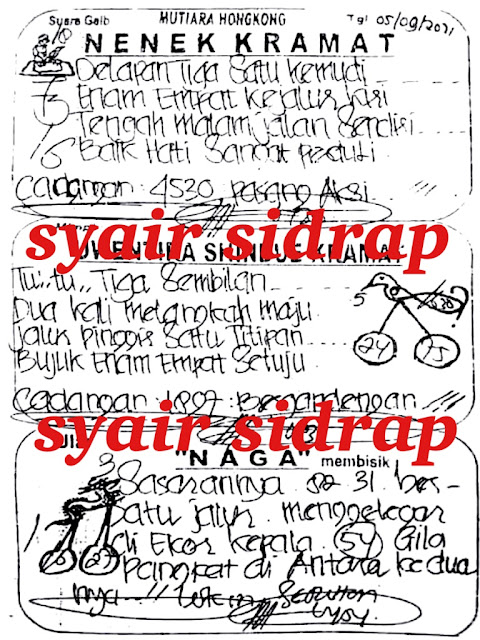 Suara Gaib MUTIARA HONGKONG Tgl 05/09/2021
NENEK KRAMAT
Delapan Tiga Satu Kemudi
Enam Empat Kejalur Kiri
Tengah malam jalan Sendiri
Baik Hati Sangat Peduli
Cadangan 4530 Pasang Aksi
syair sidrap
KRAMAT
Tu..tu.. Tiga Sembilan
Dua kali melangkah maju
5
Jalur Pinggir Satu Titipan
24 15
Bujuk Enam Empat Setuju
Cadangan 1807 Bergandengan
syair sidrap
"NAGA" membisik
3 Sasarannya 31 ber-
Satu jalur menggelegar
di Ekor kepala 54 Gila
Pangkat di Antara kedua
nya